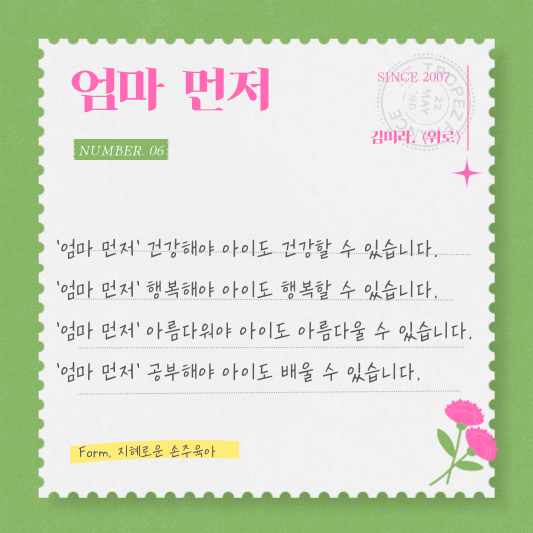 엄마 먼저
SINCE 2007
TROPEZ
22
MAY
'60
김미라, <위로>
NUMBER. 06
'엄마 먼저' 건강해야 아이도 건강할 수 있습니다.
'엄마 먼저' 행복해야 아이도 행복할 수 있습니다.
'엄마 먼저' 아름다워야 아이도 아름다울 수 있습니다.
'엄마 먼저' 공부해야 아이도 배울 수 있습니다.
Form. 지혜로운 손주육아